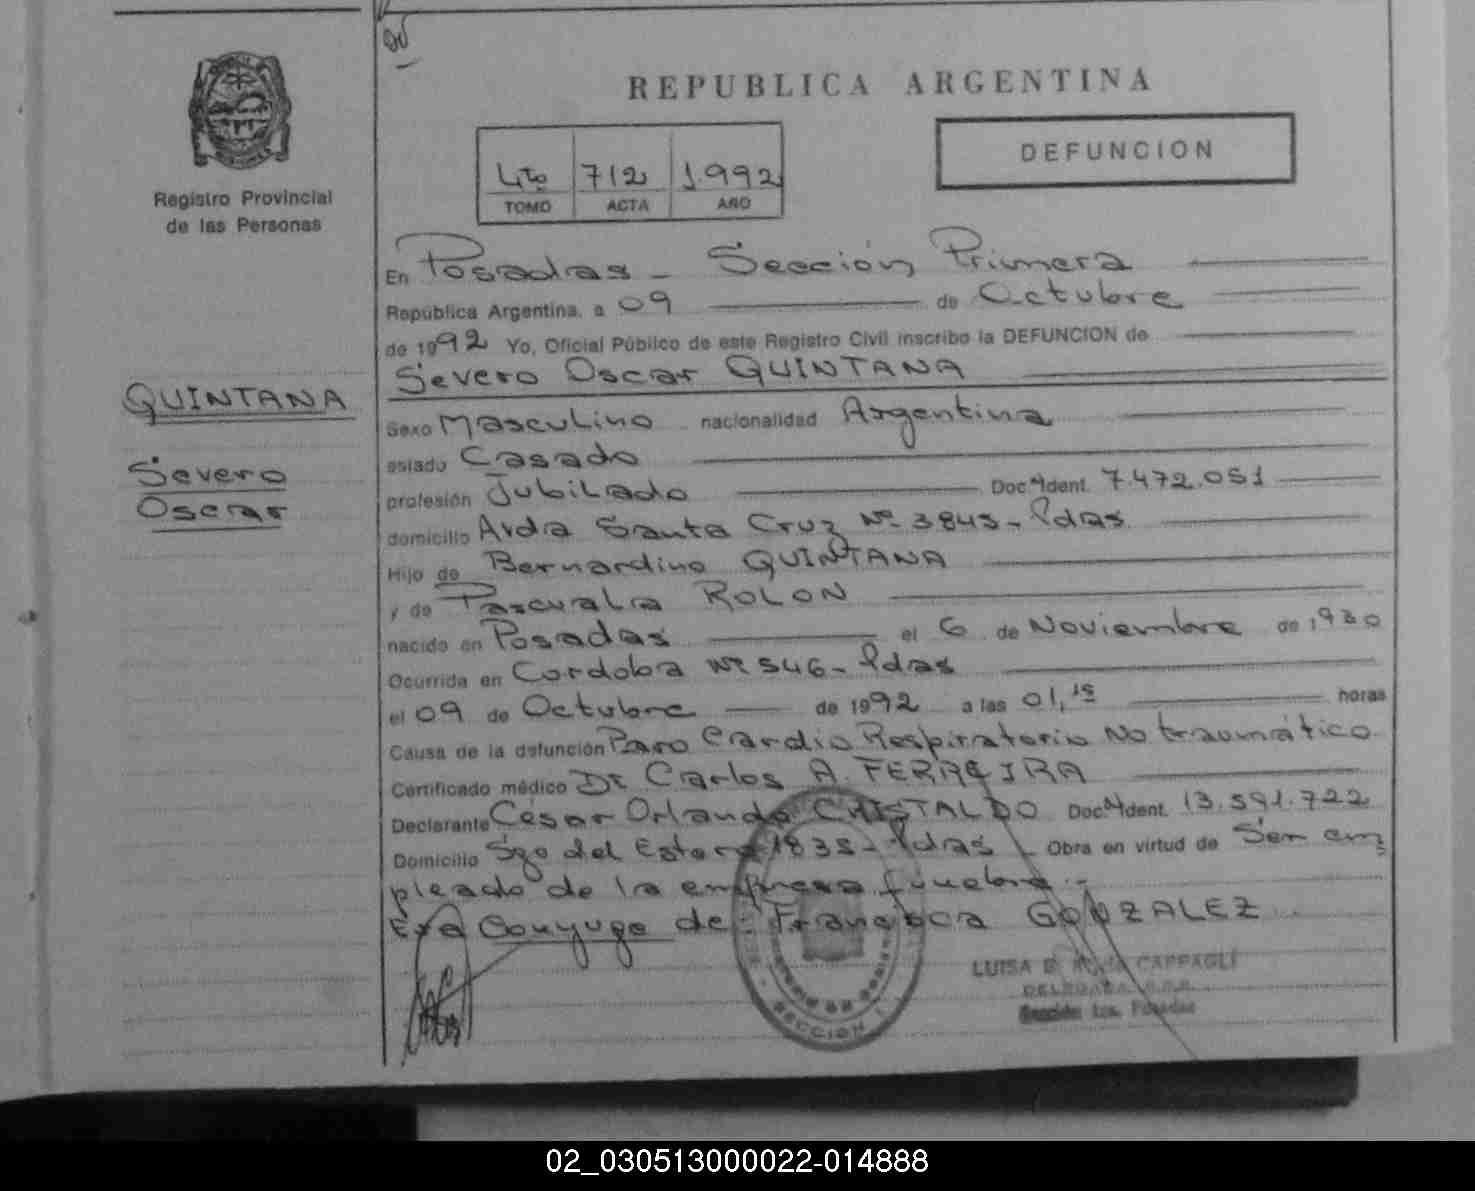 REPUBLICA ARGENTINA
DEFUNCION
4to 712 1.992
TOMO ACTA AÑO
Registro Provincial
de las Personas
En Posadas - Sección Primera
República Argentina, a 09 de Octubre
de 1992 Yo, Oficial Público de este Registro Civil inscribo la DEFUNCION de
Severo Oscar QUINTANA
QUINTANA
Severo
Oscar
Sexo Masculino nacionalidad Argentina
estado Casado
profesión Jubilado Doc. Ident. 7.472.051
domicilio Avda Santa Cruz Nº 3845 - Pdas
Hijo de Bernardino QUINTANA
y de Pascuala ROLON
nacido en Posadas el 6 de Noviembre de 1930
Ocurrida en Cordoba Nº 546 - Pdas
el 09 de Octubre de 1992 a las 01,15 horas
Causa de la defunción Paro Cardio Respiratorio No traumático
Certificado médico Dr Carlos A. FERREIRA
Declarante César Orlando CRISTALDO Doc. Ident. 13.591.722
Domicilio Sgo del Estero 1835 - Pdas - Obra en virtud de Ser em
pleado de la empresa fúnebre.-
Era Conyuge de: Francisca GONZALEZ
LUISA CAPPAGLI
DELEGADA
Sección 1ra. Posadas
SECCION 1
02_030513000022-014888